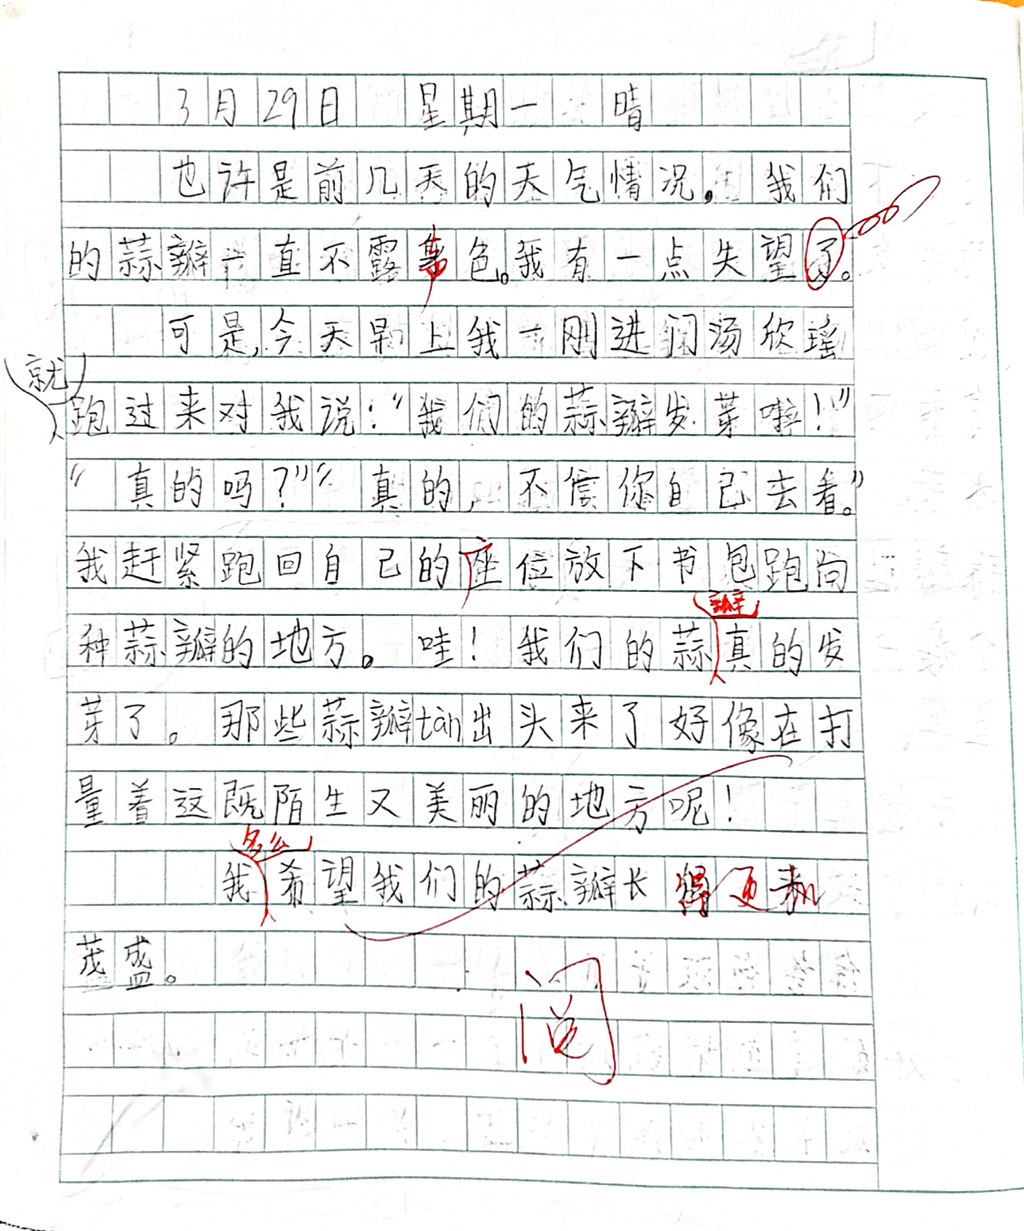 3月29日 星期一 晴
也许是前几天的天气情况,我们
的蒜瓣一直不露声色。我有一点失望了。
可是,今天早上我一刚进门汤欣瑶
就
跑过来对我说:“我们的蒜瓣发芽啦!”
“真的吗?”“真的,不信你自己去看。”
我赶紧跑回自己的座位放下书包跑向
瓣
种蒜瓣的地方。哇!我们的蒜真的发
芽了。那些蒜瓣tàn出头来了好像在打
量着这既陌生又美丽的地方呢!
多么
我希望我们的蒜瓣长得更来
茂盛。
阅